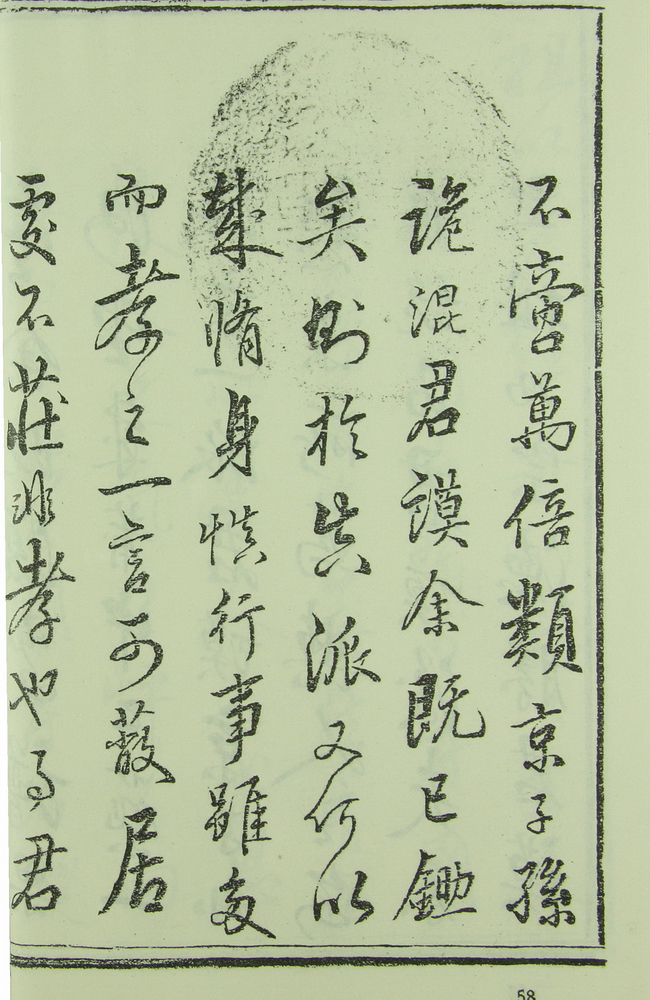 不啻萬倍類京子孫
詭混君謨余既已鋤
矣則於真派又何以
栽脩身慎行事雖多
而孝之一言可蔽居
處不莊非孝也事君
58